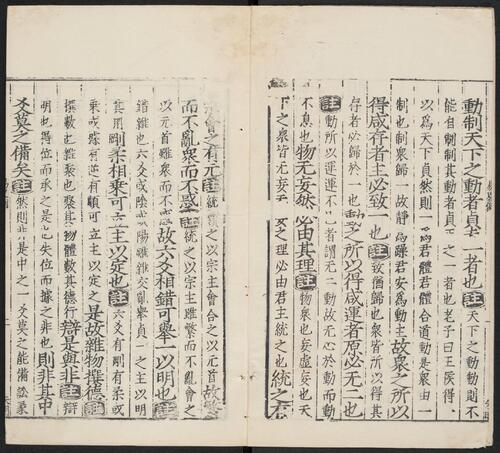 動制天下之動者貞夫一者也註天下之動動則不
能自制制其動者貞正之一者也老子曰王侯得
以為天下貞然則一為君體君體合道動是衆由一
制也制衆歸一故靜爲躁君安為動主故衆之所以
得咸存者主必致一也註致猶歸也衆皆所以得其
存者必歸於一也動之所以得咸運者原必无二也
註動所以運運不已者謂无二動故无心於動而動
不息也物无妄然必由其理註物衆也妄虛妄也天
下之衆皆无妄无妄之理必由君主統之也統之有
宗會之有元註統之以宗主會之以元首故繁
而不亂衆而不惑註統之以宗主雖繁而不亂會之
以元首雖衆而不惑故六爻相錯可舉一以明也註
錯雜也六爻或陰或陽雜雜交亂舉貞一之主以明
其用剛柔相乗可立主以定也註六爻有剛有柔或
乗或據有逆有順可立主以定之是故雜物撰德註
撰數也雜聚也聚其物體數其德行辯是與非註辯
明也得位而承之是也失位而據之非也則非其中
爻莫之備矣註然則非是中之一爻莫之能備訟彖